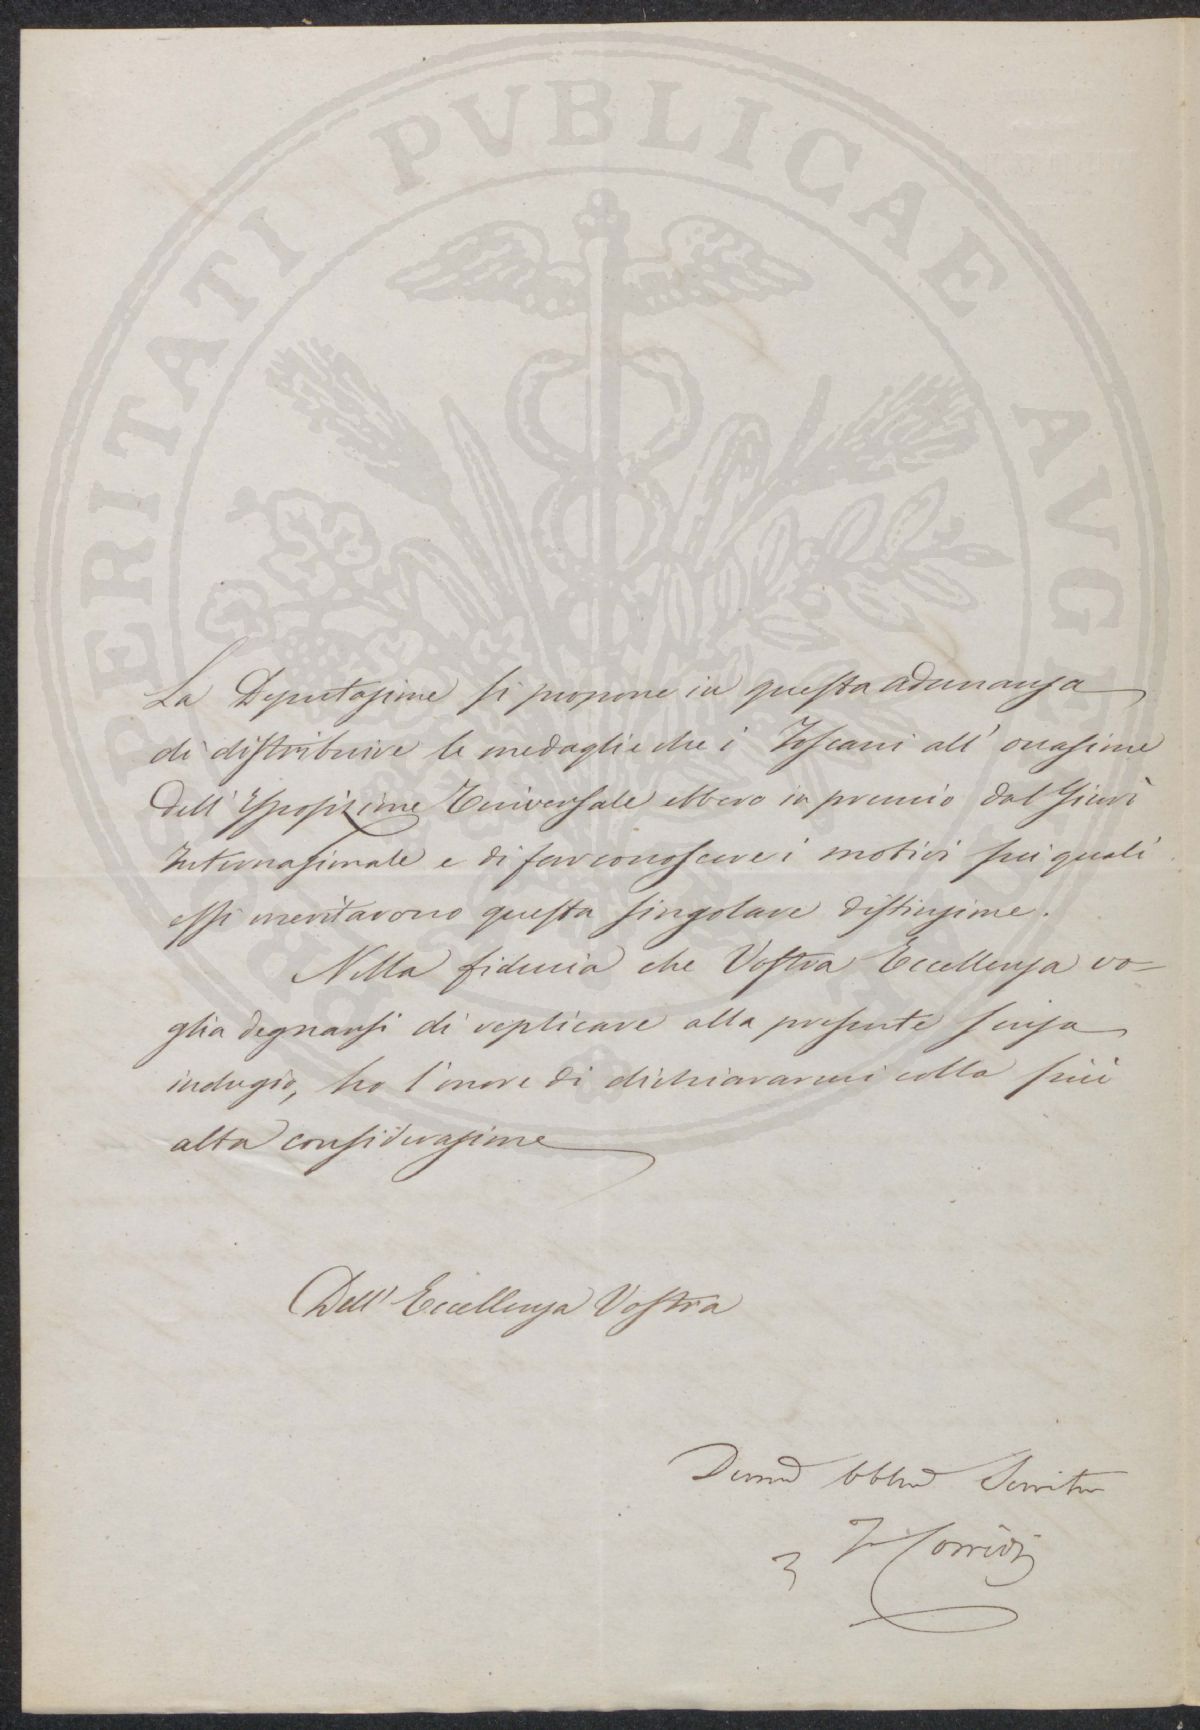 PROSPERITATI PVBLICAE AVGENDAE
La Deputazione si propone in questa adunanza
di distribuire le medaglie che i Toscani all' occasione
dell' Esposizione Universale ebbero in premio dal Giurì
Internazionale e di far conoscere i motivi pei quali
essi meritarono questa singolare distinzione.
Nella fiducia che Vostra Eccellenza vo-
glia degnarsi di replicare alla presente senza
indugio, ho l'onore di dichiararmi colla più
alta considerazione
Dell' Eccellenza Vostra
Devmo Obblmo Servitor
F. Corridi